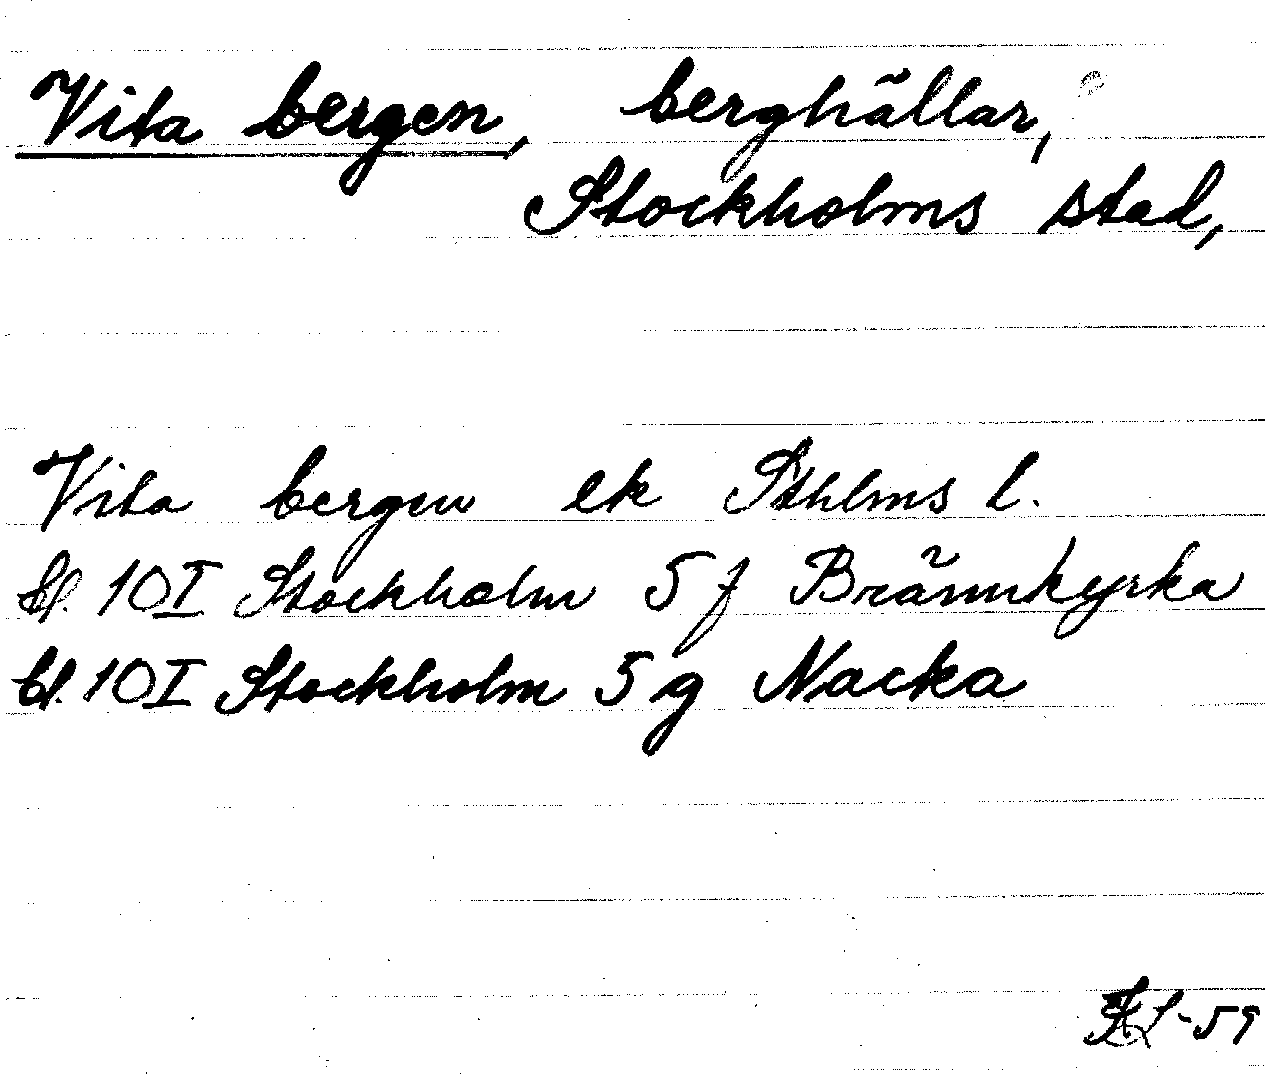 Vita bergen, berghällar,
Stockholms stad,
Vita bergen ek Sthlms l.
bl. 10I Stockholm 5 f Brännkyrka
bl. 10I Stockholm 5 g Nacka
-59